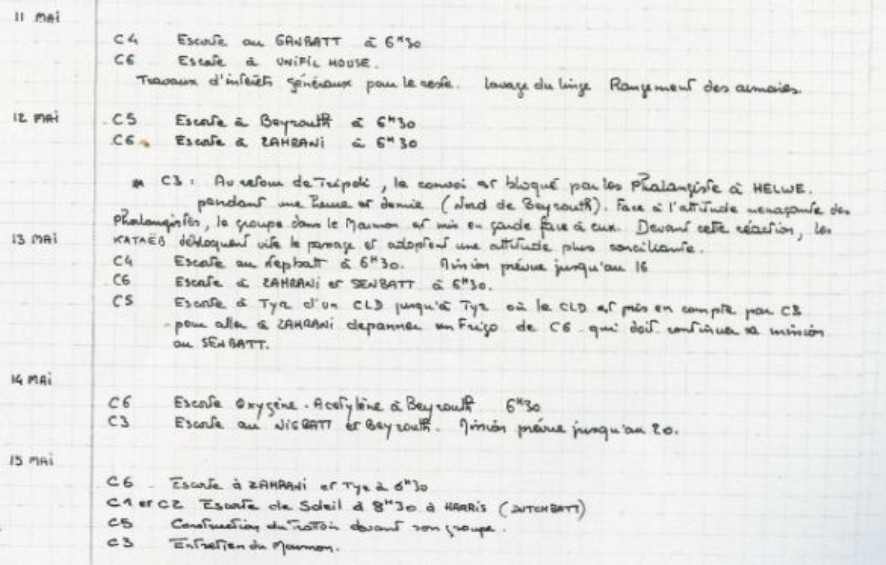 11 MAI
C4 Escorte au GANBATT à 6H30
C6 Escorte à UNIFIL HOUSE.
Travaux d'intérêts généraux pour le reste. Lavage du linge Rangement des armoires.
12 MAI C5 Escorte à Beyrouth à 6H30
C6 Escorte à ZAHRANI à 6H30
C3 : Au retour de Tripoli, le convoi est bloqué par les Phalangiste à HELWE.
pendant une heure et demie (Nord de Beyrouth). Face à l'attitude menaçante des
Phalangistes, le groupe dans le Marmon est mis en garde face à eux. Devant cette réaction, les
13 MAI KATAEB débloquent vite le passage et adoptent une attitude plus conciliante.
C4 Escorte au Nepbatt à 6H30. Mission prévue jusqu'au 16
C6 Escorte à ZAHRANI et SENBATT à 6H30.
C5 Escorte à Tyr d'un CLD jusqu'à Tyr où le CLD est pris en compte par C3
pour aller à ZAHRANI depanner un Frigo de C6 qui doit continuer sa mission
au SENBATT.
14 MAI
C6 Escorte Oxygène - Acetylène à Beyrouth 6H30
C3 Escorte au NIGBATT et Beyrouth. Mission prévue jusqu'au 20.
15 MAI
C6 Escorte à ZAHRANI et Tyr à 6H30
C1 et C2 Escorte de Soleil à 8H30 à HARRIS (DUTCHBATT)
C5 Construction du trottoir devant son groupe.
C3 Entretien du Marmon.